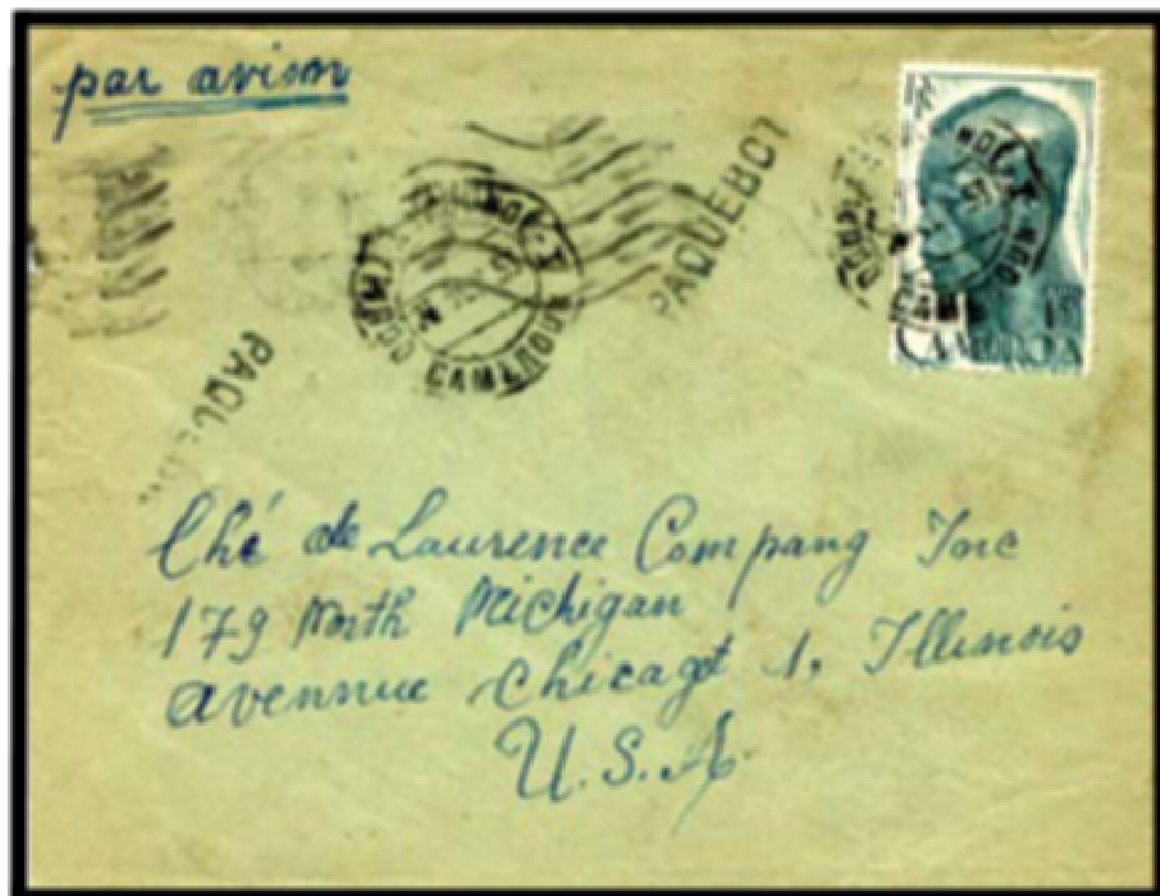 par avion
PAQUEBOT
CAMEROUN
PAQUE
CAMEROUN
Ché de Laurence Company Inc
179 North Michigan
avennue chicagot 1, Illinois
U.S.A